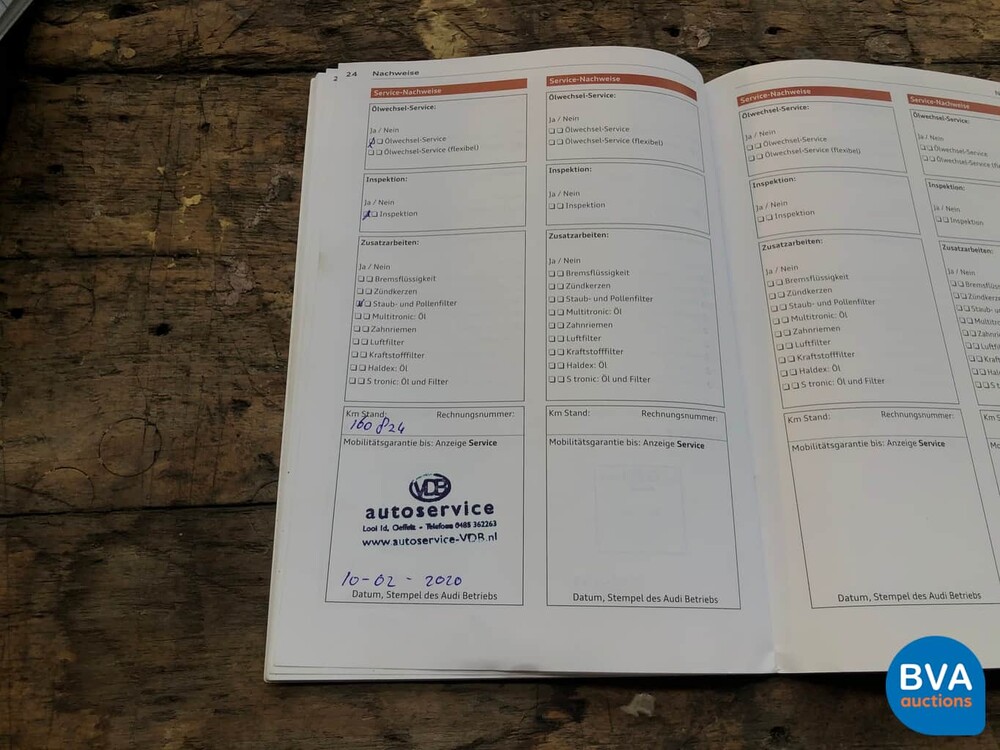 2 2.4 Nachweise
Service-Nachweise
Ölwechsel-Service:
Ja / Nein
Ölwechsel-Service
Ölwechsel-Service (flexibel)
Inspektion:
Ja / Nein
Inspektion
Zusatzarbeiten:
Ja / Nein
Bremsflüssigkeit
Zündkerzen
Staub- und Pollenfilter
Multitronic: Öl
Zahnriemen
Luftfilter
Kraftstofffilter
Haldex: Öl
S tronic: Öl und Filter
Km Stand: Rechnungsnummer:
160 824
Mobilitätsgarantie bis: Anzeige Service
VDB
autoservice
Looi 1d, Oeffelt - Telefoon 0485 362263
www.autoservice-VDB.nl
10-02-2020
Datum, Stempel des Audi Betriebs
Service-Nachweise
Ölwechsel-Service:
Ja / Nein
Ölwechsel-Service
Ölwechsel-Service (flexibel)
Inspektion:
Ja / Nein
Inspektion
Zusatzarbeiten:
Ja / Nein
Bremsflüssigkeit
Zündkerzen
Staub- und Pollenfilter
Multitronic: Öl
Zahnriemen
Luftfilter
Kraftstofffilter
Haldex: Öl
S tronic: Öl und Filter
Km Stand: Rechnungsnummer:
Mobilitätsgarantie bis: Anzeige Service
Datum, Stempel des Audi Betriebs
Service-Nachweise
Ölwechsel-Service:
Ja / Nein
Ölwechsel-Service
Ölwechsel-Service (flexibel)
Inspektion:
Ja / Nein
Inspektion
Zusatzarbeiten:
Ja / Nein
Bremsflüssigkeit
Zündkerzen
Staub- und Pollenfilter
Multitronic: Öl
Zahnriemen
Luftfilter
Kraftstofffilter
Haldex: Öl
S tronic: Öl und Filter
Km Stand: Rechnungsnummer:
Mobilitätsgarantie bis: Anzeige Service
Datum, Stempel des Audi Betriebs
Service-Nachweise
Ölwechsel-Service:
Ja / Nein
Ölwechsel-Service
Ölwechsel-Service (fle
Inspektion:
Ja / Nein
Inspektion
Zusatzarbeiten:
Ja / Nein
Bremsflüss
Zündkerze
Staub- u
Multitro
Zahnri
Luftfi
Kraft
Hal
S t
Km
BVA
auctions